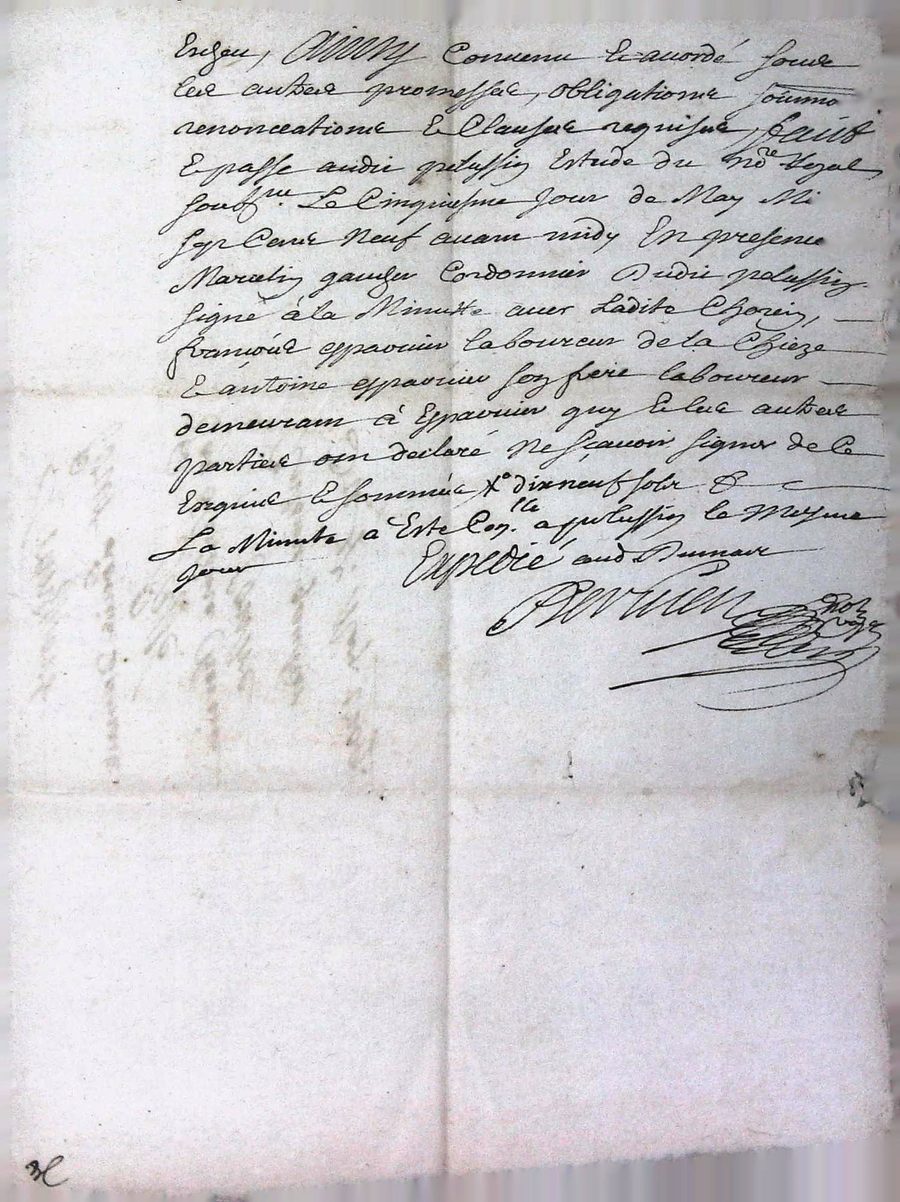 Ainsy Convenu et acordé soubs
les autres promesses, obligations soumis
renonceations et Clauses requises, faict
Et passé audit pelussin Estude du no.re Royal
soub.ne Le Cinquiesme Jour de May Mi
sept Cens Neuf avant midy En presence
Marcelin gaucher Cordonnier Dudit pelussin
signé à la Minutte avec Ladite Chorein,
françois espavrier laboureur de la Chieze
Et ántoine espavrier son frere laboureur
demeurant à Espavrier quy et les autres
parties ont declaré Ne sçavoir signer de Ce
Enquis et sommés dix neuf sols
La Minute à Esté Con.lée a pelussin le Mesme
Jour
Expedié aud
no.re
royal